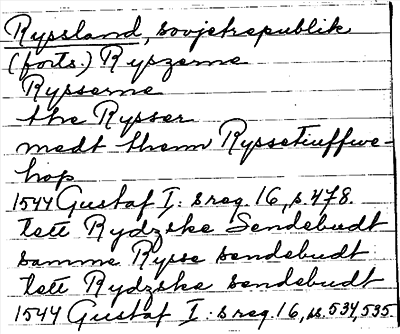 Ryssland, sovjetrepublik
(forts.) Ryszerne
Rysserne
the Rysser
medt them Ryssetiuffwe-
hop
1544 Gustaf I: s reg. 16, s. 478.
tett Rydzske Sendebudt
samme Rysse sendebudt
tett Rydzske sendebudt
1544 Gustaf I: s reg. 16, ss. 534, 535